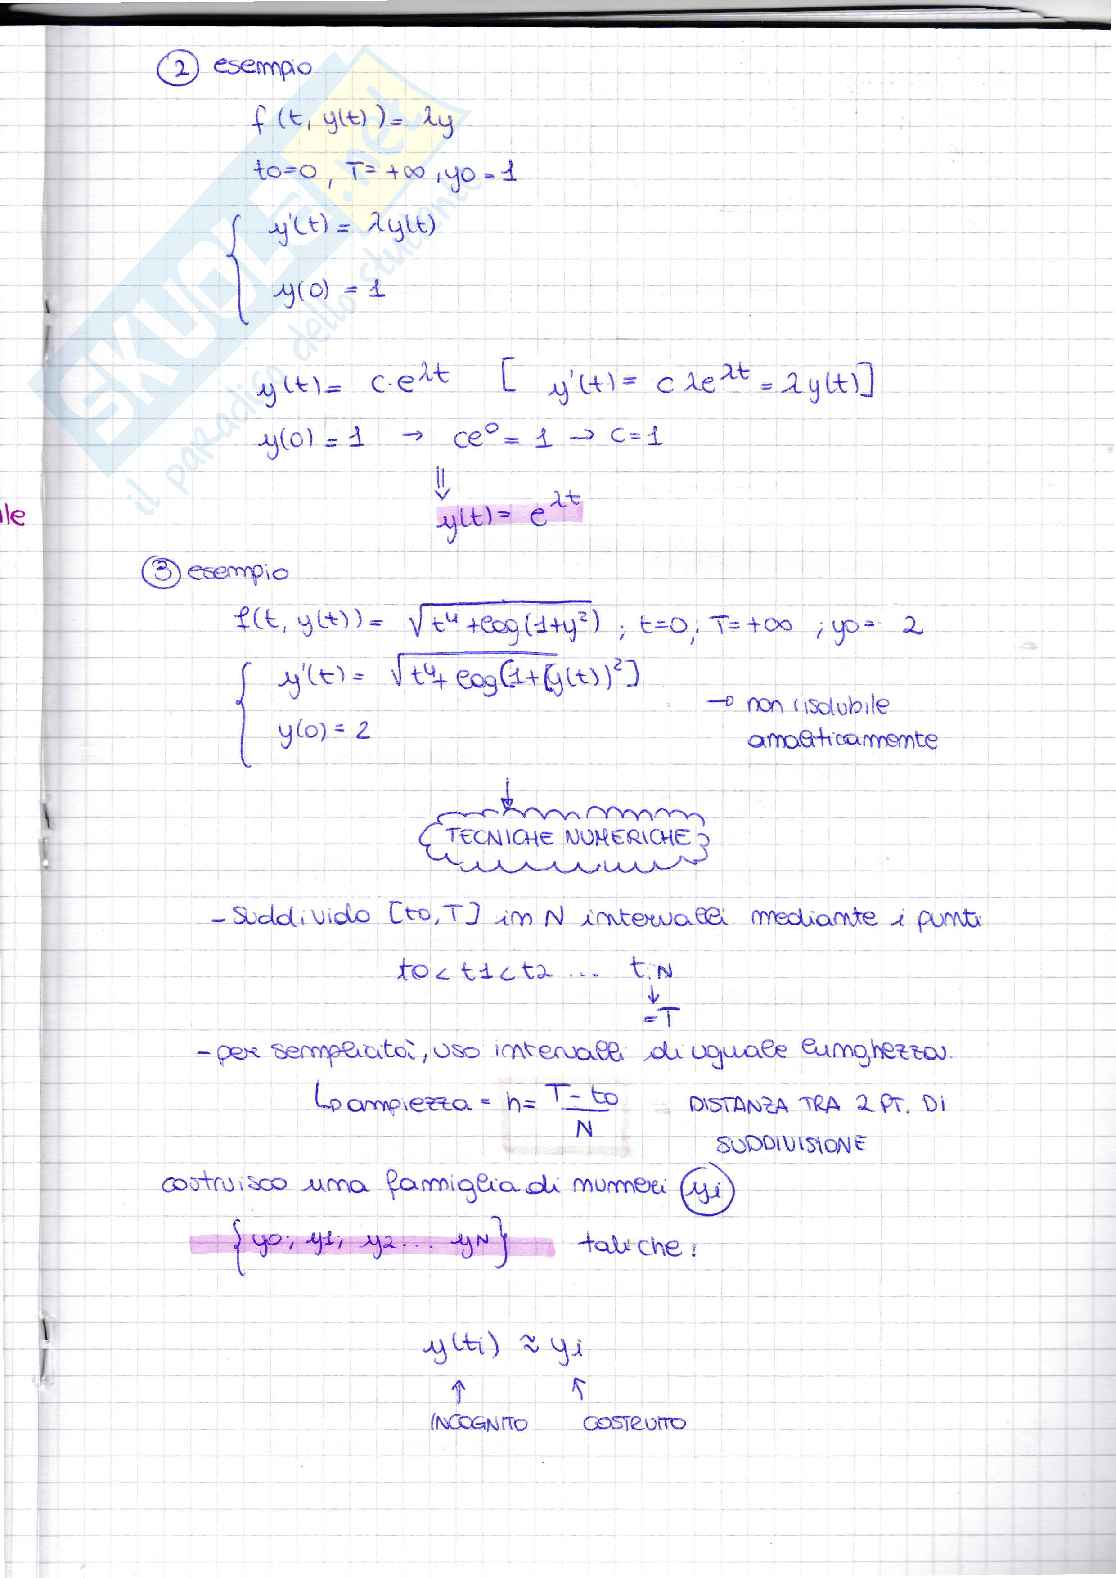 ② esempio
f(t, y(t)) = λy
t0=0, T= +∞, y0=1
y'(t) = λy(t)
y(0) = 1
y(t) = c·e^λt [ y'(t) = cλe^λt = λy(t)]
y(0) = 1 → ce^0 = 1 → c=1
⇓
y(t) = e^λt
le
③ esempio
f(t, y(t)) = √t^4+log(1+y^2) ; t=0; T=+∞ ; y0= 2
y'(t) = √t^4+ log[1+(y(t))^2]
y(0) = 2
→ non risolubile
analiticamente
↓
TECNICHE NUMERICHE
- Suddivido [t0,T] in N intervalli mediante i punti
t0 < t1 < t2 ... tN
↓
=T
- per semplicità, uso intervalli di uguale lunghezza.
↳ ampiezza = h = T-t0/N DISTANZA TRA 2 PT. DI
SUDDIVISIONE
costruisco una famiglia di numeri yi
{y0, y1, y2 ... yN} tali che:
y(ti) ≈ yi
↑ ↑
INCOGNITO COSTRUITO
SKUOLA.net
il paradiso dello studente